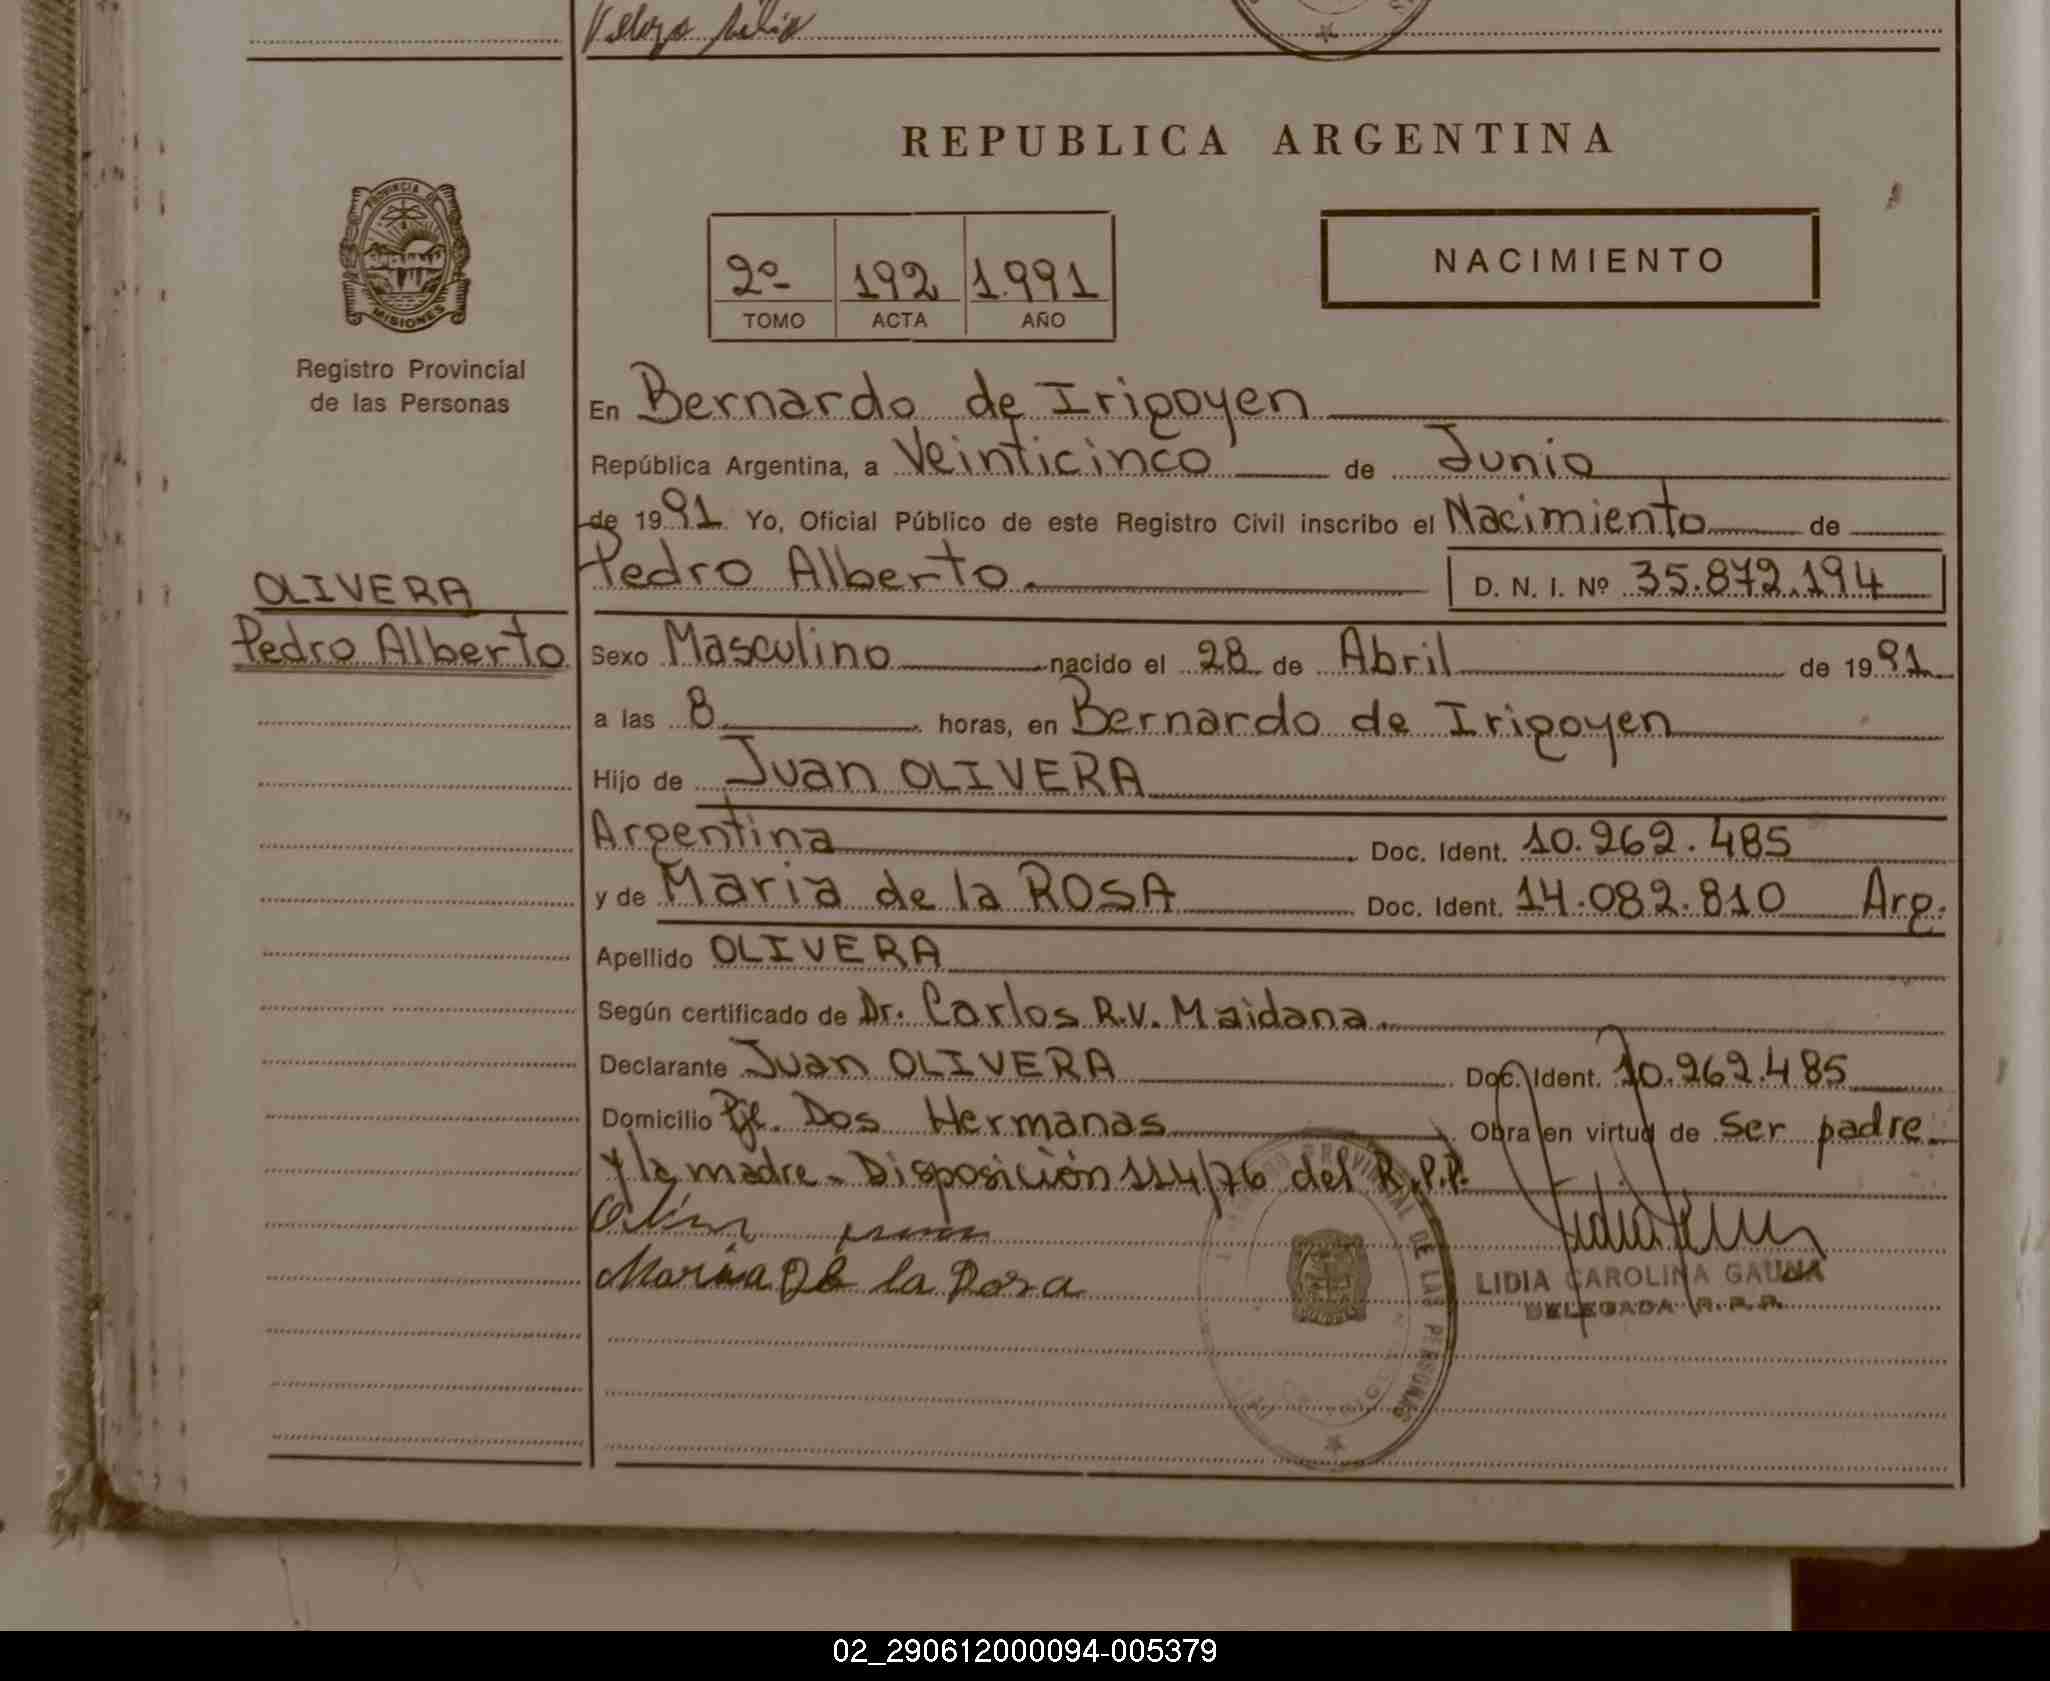 REPUBLICA ARGENTINA
PROVINCIA D
MISIONES
Registro Provincial
de las Personas
2º 192 1.991
TOMO ACTA AÑO
NACIMIENTO
En Bernardo de Irigoyen
República Argentina, a Veinticinco de Junio
de 1991 Yo, Oficial Público de este Registro Civil inscribo el Nacimiento de
OLIVERA
Pedro Alberto
Pedro Alberto. D. N. I. Nº 35.872.194
Sexo Masculino nacido el 28 de Abril de 1991
a las 8 horas, en Bernardo de Irigoyen
Hijo de Juan OLIVERA
Argentina Doc. Ident. 10.262.485
y de Maria de la ROSA Doc. Ident. 14.082.810 Arg.
Apellido OLIVERA
Según certificado de Dr. Carlos R.V. Maidana.
Declarante Juan OLIVERA Doc. Ident. 10.262.485
Domicilio Pje. Dos Hermanas Obra en virtud de ser padre
y la madre. Disposición 114/76 del R.P.P.
Maria De la Rosa
PROVINCIAL DE LAS PERSONAS
LIDIA CAROLINA GAUNA
DELEGADA R.P.P.
02_290612000094-005379